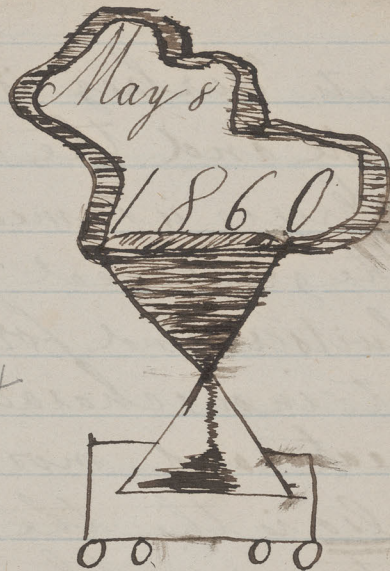 May 8
1860